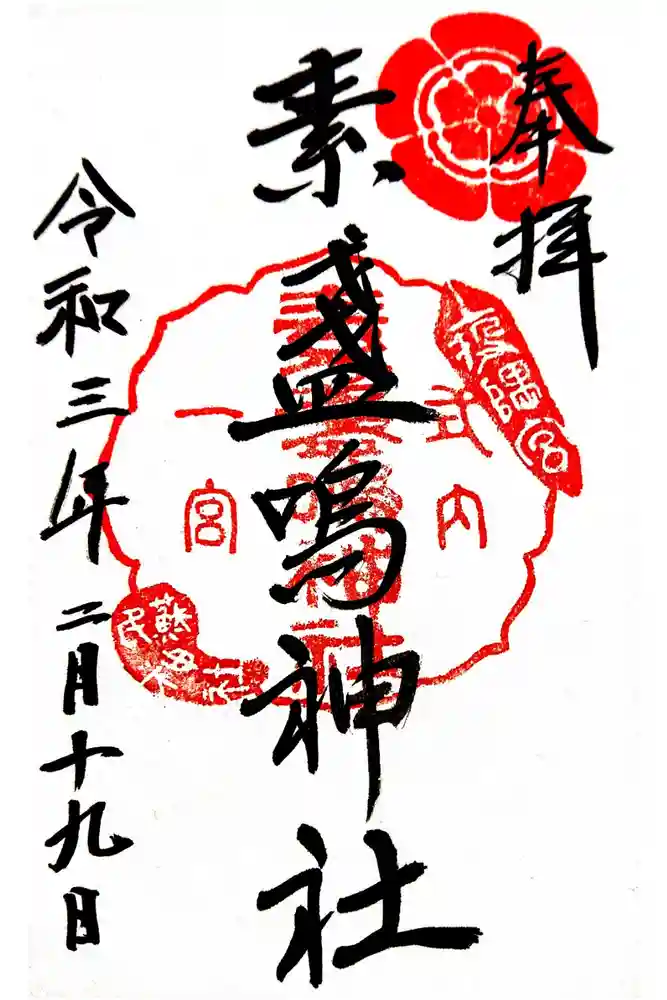 奉拝
素盞嗚神社
令和三年二月十九日
式内
一宮
素盞嗚神社